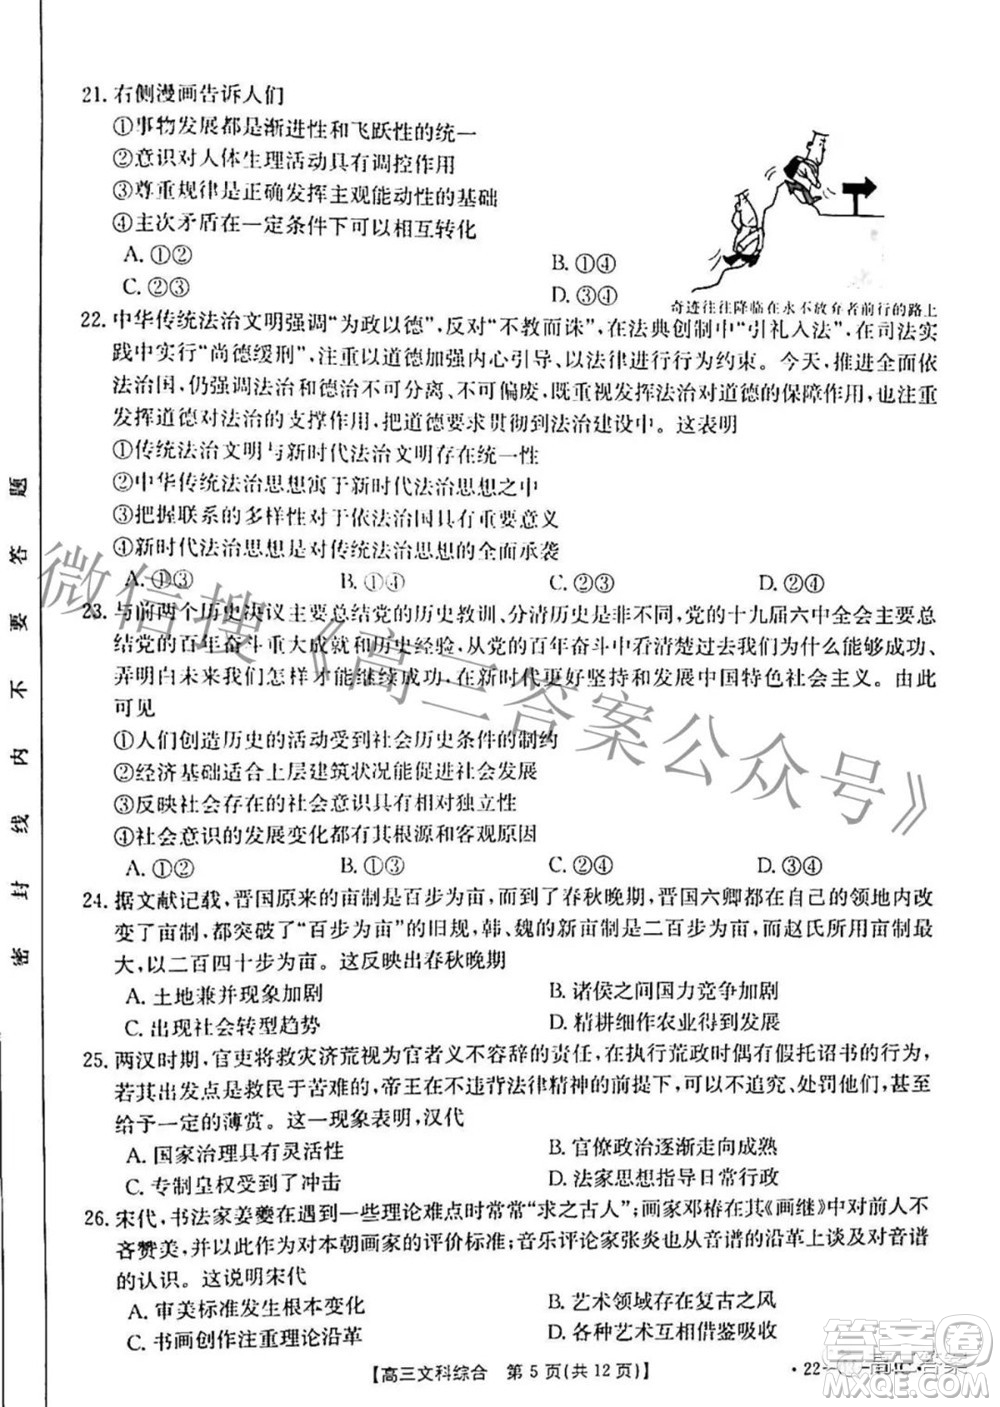 21. 右侧漫画告诉人们
①事物发展都是渐进性和飞跃性的统一
②意识对人体生理活动具有调控作用
③尊重规律是正确发挥主观能动性的基础
④主次矛盾在一定条件下可以相互转化
A. ①②
B. ①④
C. ②③
D. ③④
奇迹往往降临在永不放弃者前行的路上
22. 中华传统法治文明强调“为政以德”,反对“不教而诛”,在法典创制中“引礼入法”,在司法实
践中实行“尚德缓刑”,注重以道德加强内心引导、以法律进行行为约束。今天,推进全面依
法治国,仍强调法治和德治不可分离、不可偏废,既重视发挥法治对道德的保障作用,又注重
发挥道德对法治的支撑作用,把道德要求贯彻到法治建设中。这表明
①传统法治文明与新时代法治文明存在统一性
②中华传统法治思想寓于新时代法治思想之中
③把握联系的多样性对于依法治国具有重要意义
④新时代法治思想是对传统法治思想的全面承袭
A. ①③
B. ①④
C. ②③
D. ②④
23. 与前两个历史决议主要总结党的历史教训、分清历史是非不同,党的十九届六中全会主要总
结党的百年奋斗重大成就和历史经验,从党的百年奋斗中看清楚过去我们为什么能够成功、
弄明白未来我们怎样才能继续成功,在新时代更好坚持和发展中国特色社会主义。由此
可见
①人们创造历史的活动受到社会历史条件的制约
②经济基础适合上层建筑状况能促进社会的发展
③反映社会存在的社会意识具有相对独立性
④社会意识的发展变化都有其根源和客观原因
A. ①②
B. ①③
C. ②④
D. ③④
24. 据文献记载,晋国原来的亩制是百步为亩,而到了春秋晚期,晋国六卿都在自己的领地内改
变了亩制,都突破了“百步为亩”的旧规,韩、魏的新亩制是二百步为亩,而赵氏所行亩制最
大,以二百四十步为亩。这反映出春秋晚期
A. 土地兼并现象加剧
B. 诸侯之间国力竞争加剧
C. 出现社会转型趋势
D. 精耕细作农业得到发展
25. 两汉时期,官吏将救灾济荒视为官者义不容辞的责任,在执行荒政时偶有假托诏书的行为,
若其出发点是救民于苦难的,帝王在不违背法律精神的前提下,可免于追究、处罚他们,甚至
给予一定的薄赏。这一现象表明,汉代
A. 国家治理具有灵活性
B. 官僚政治逐渐走向成熟
C. 专制皇权受到了冲击
D. 法家思想指导日常行政
26. 宋代,书法家姜夔在遇到一些理论难点时常常“求之古人”;画家邓椿在其《画继》中对前人不
吝赞美,并以此作为对本朝画家的评价标准;音乐评论家张炎也从音谱的沿革上谈及对音谱
的认识。这说明宋代
A. 审美标准发生根本变化
B. 艺术领域存在复古之风
C. 书画创作注重理论沿革
D. 各种艺术互相借鉴吸收
【高三文科综合 第 5 页(共 12 页)】
密 封 线 内 不 要 答 题
微信搜《高三答案公众号》